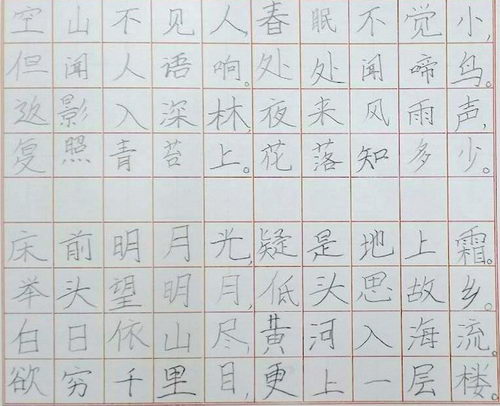 空山不见人,春眠不觉小,
但闻人语响。处处闻啼鸟。
返影入深林,夜来风雨声,
复照青苔上。花落知多少。
床前明月光,疑是地上霜。
举头望明月,低头思故乡。
白日依山尽,黄河入海流。
欲穷千里目,更上一层楼。